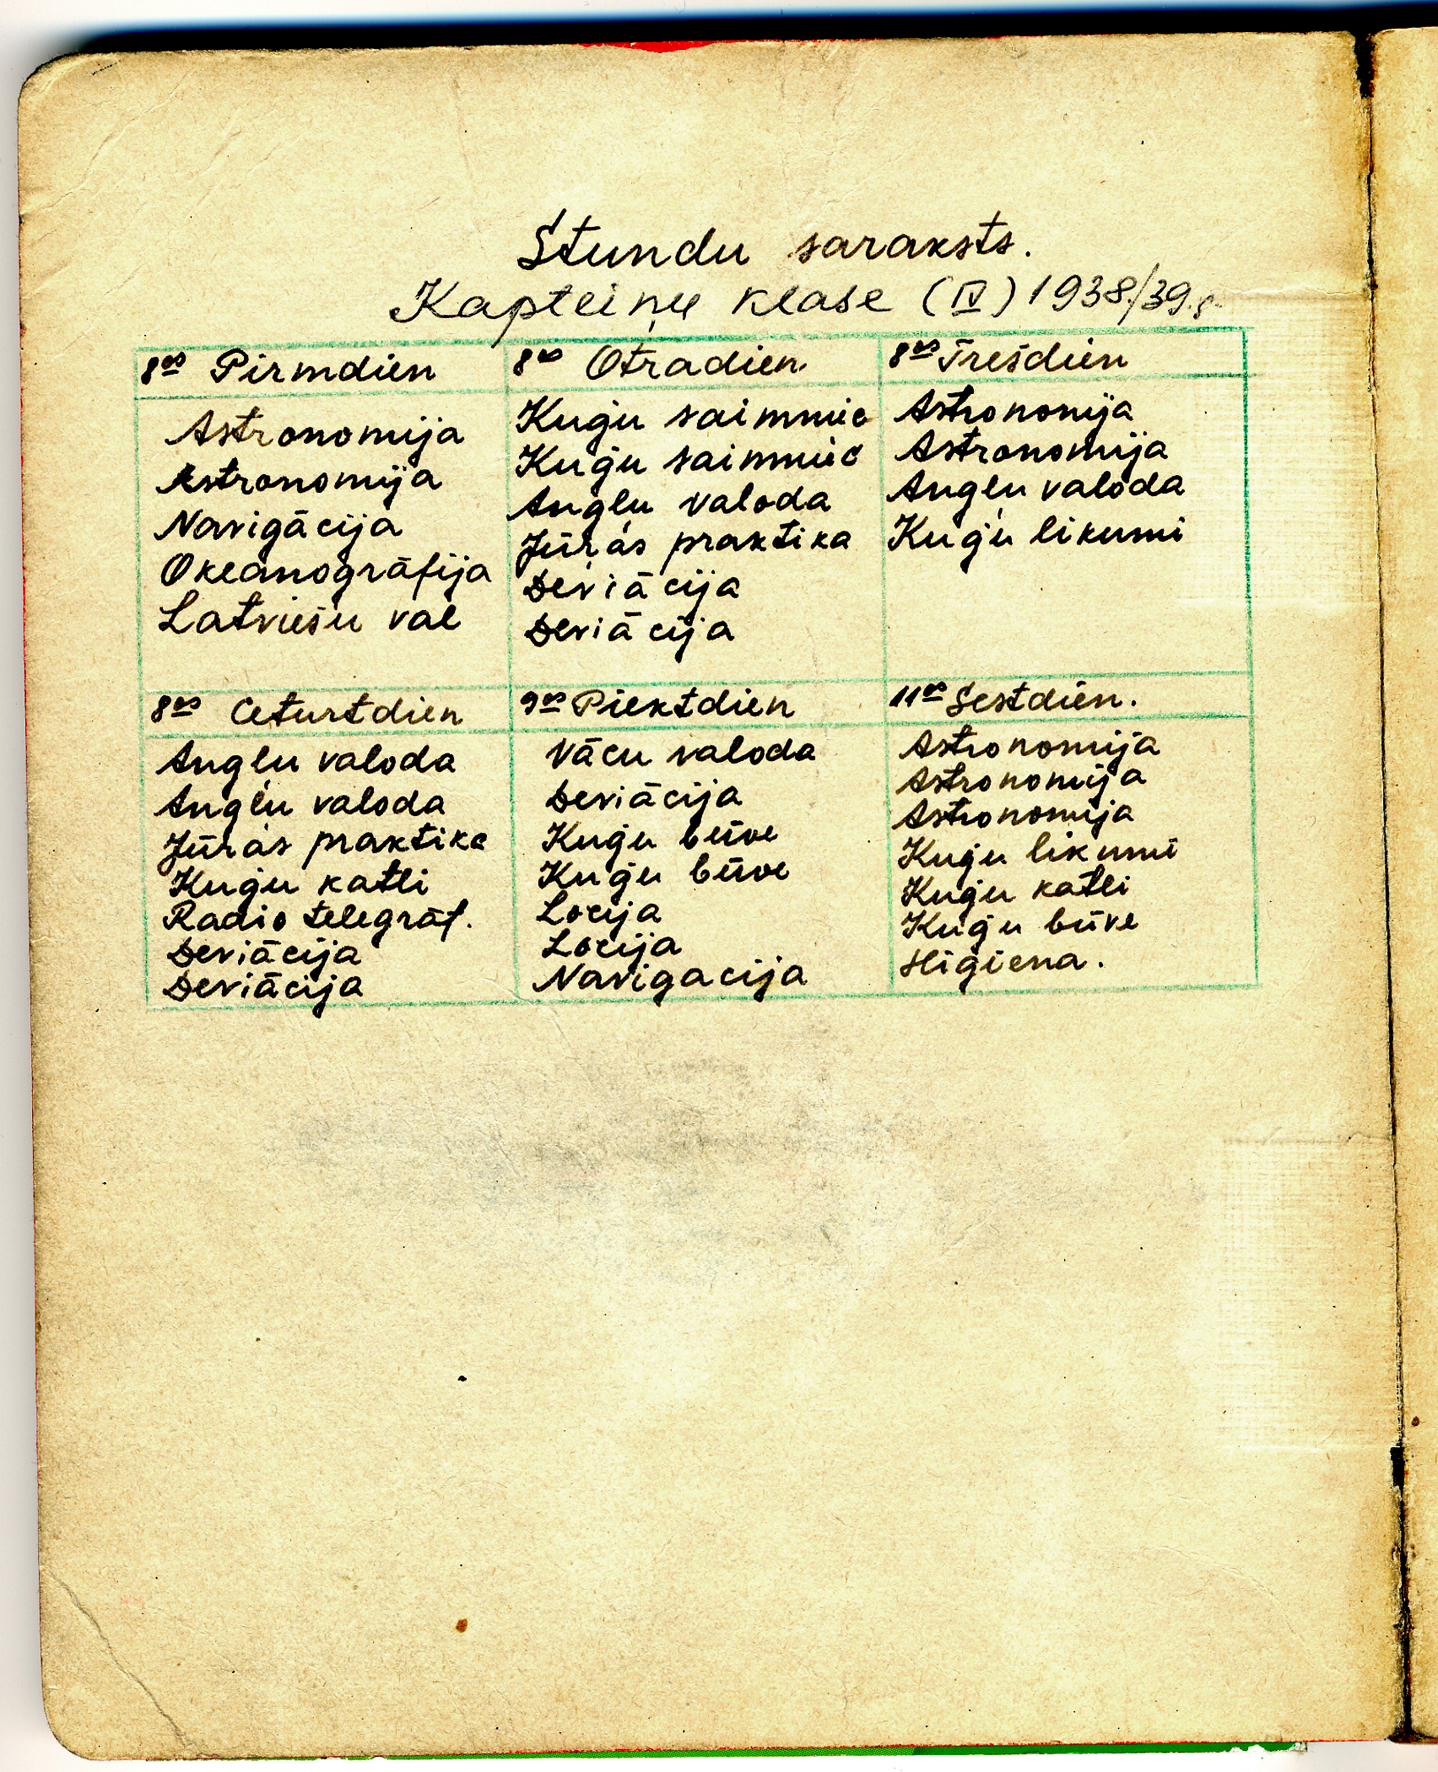 Stundu saraksts.
Kapteiņu klase (IV) 1938./39.g.
8⁰⁰ Pirmdien
Astronomija
Astronomija
Navigācija
Okeanogrāfija
Latviešu val
8⁰⁰ Otradien
Kuģu saimniec
Kuģu saimniec
Angļu valoda
Jūras praktika
Deviācija
Deviācija
8⁰⁰ Trešdien
Astronomija
Astronomija
Angļu valoda
Kuģu likumi
8⁰⁰ Ceturtdien
Angļu valoda
Angļu valoda
Jūras praktika
Kuģu katli
Radio telegrāf.
Deviācija
Deviācija
9⁰⁰ Piektdien
Vācu valoda
Deviācija
Kuģu būve
Kuģu būve
Locija
Locija
Navigacija
11⁰⁰ Sestdien.
Astronomija
Astronomija
Astronomija
Kuģu likumi
Kuģu katli
Kuģu būve
Higiena.